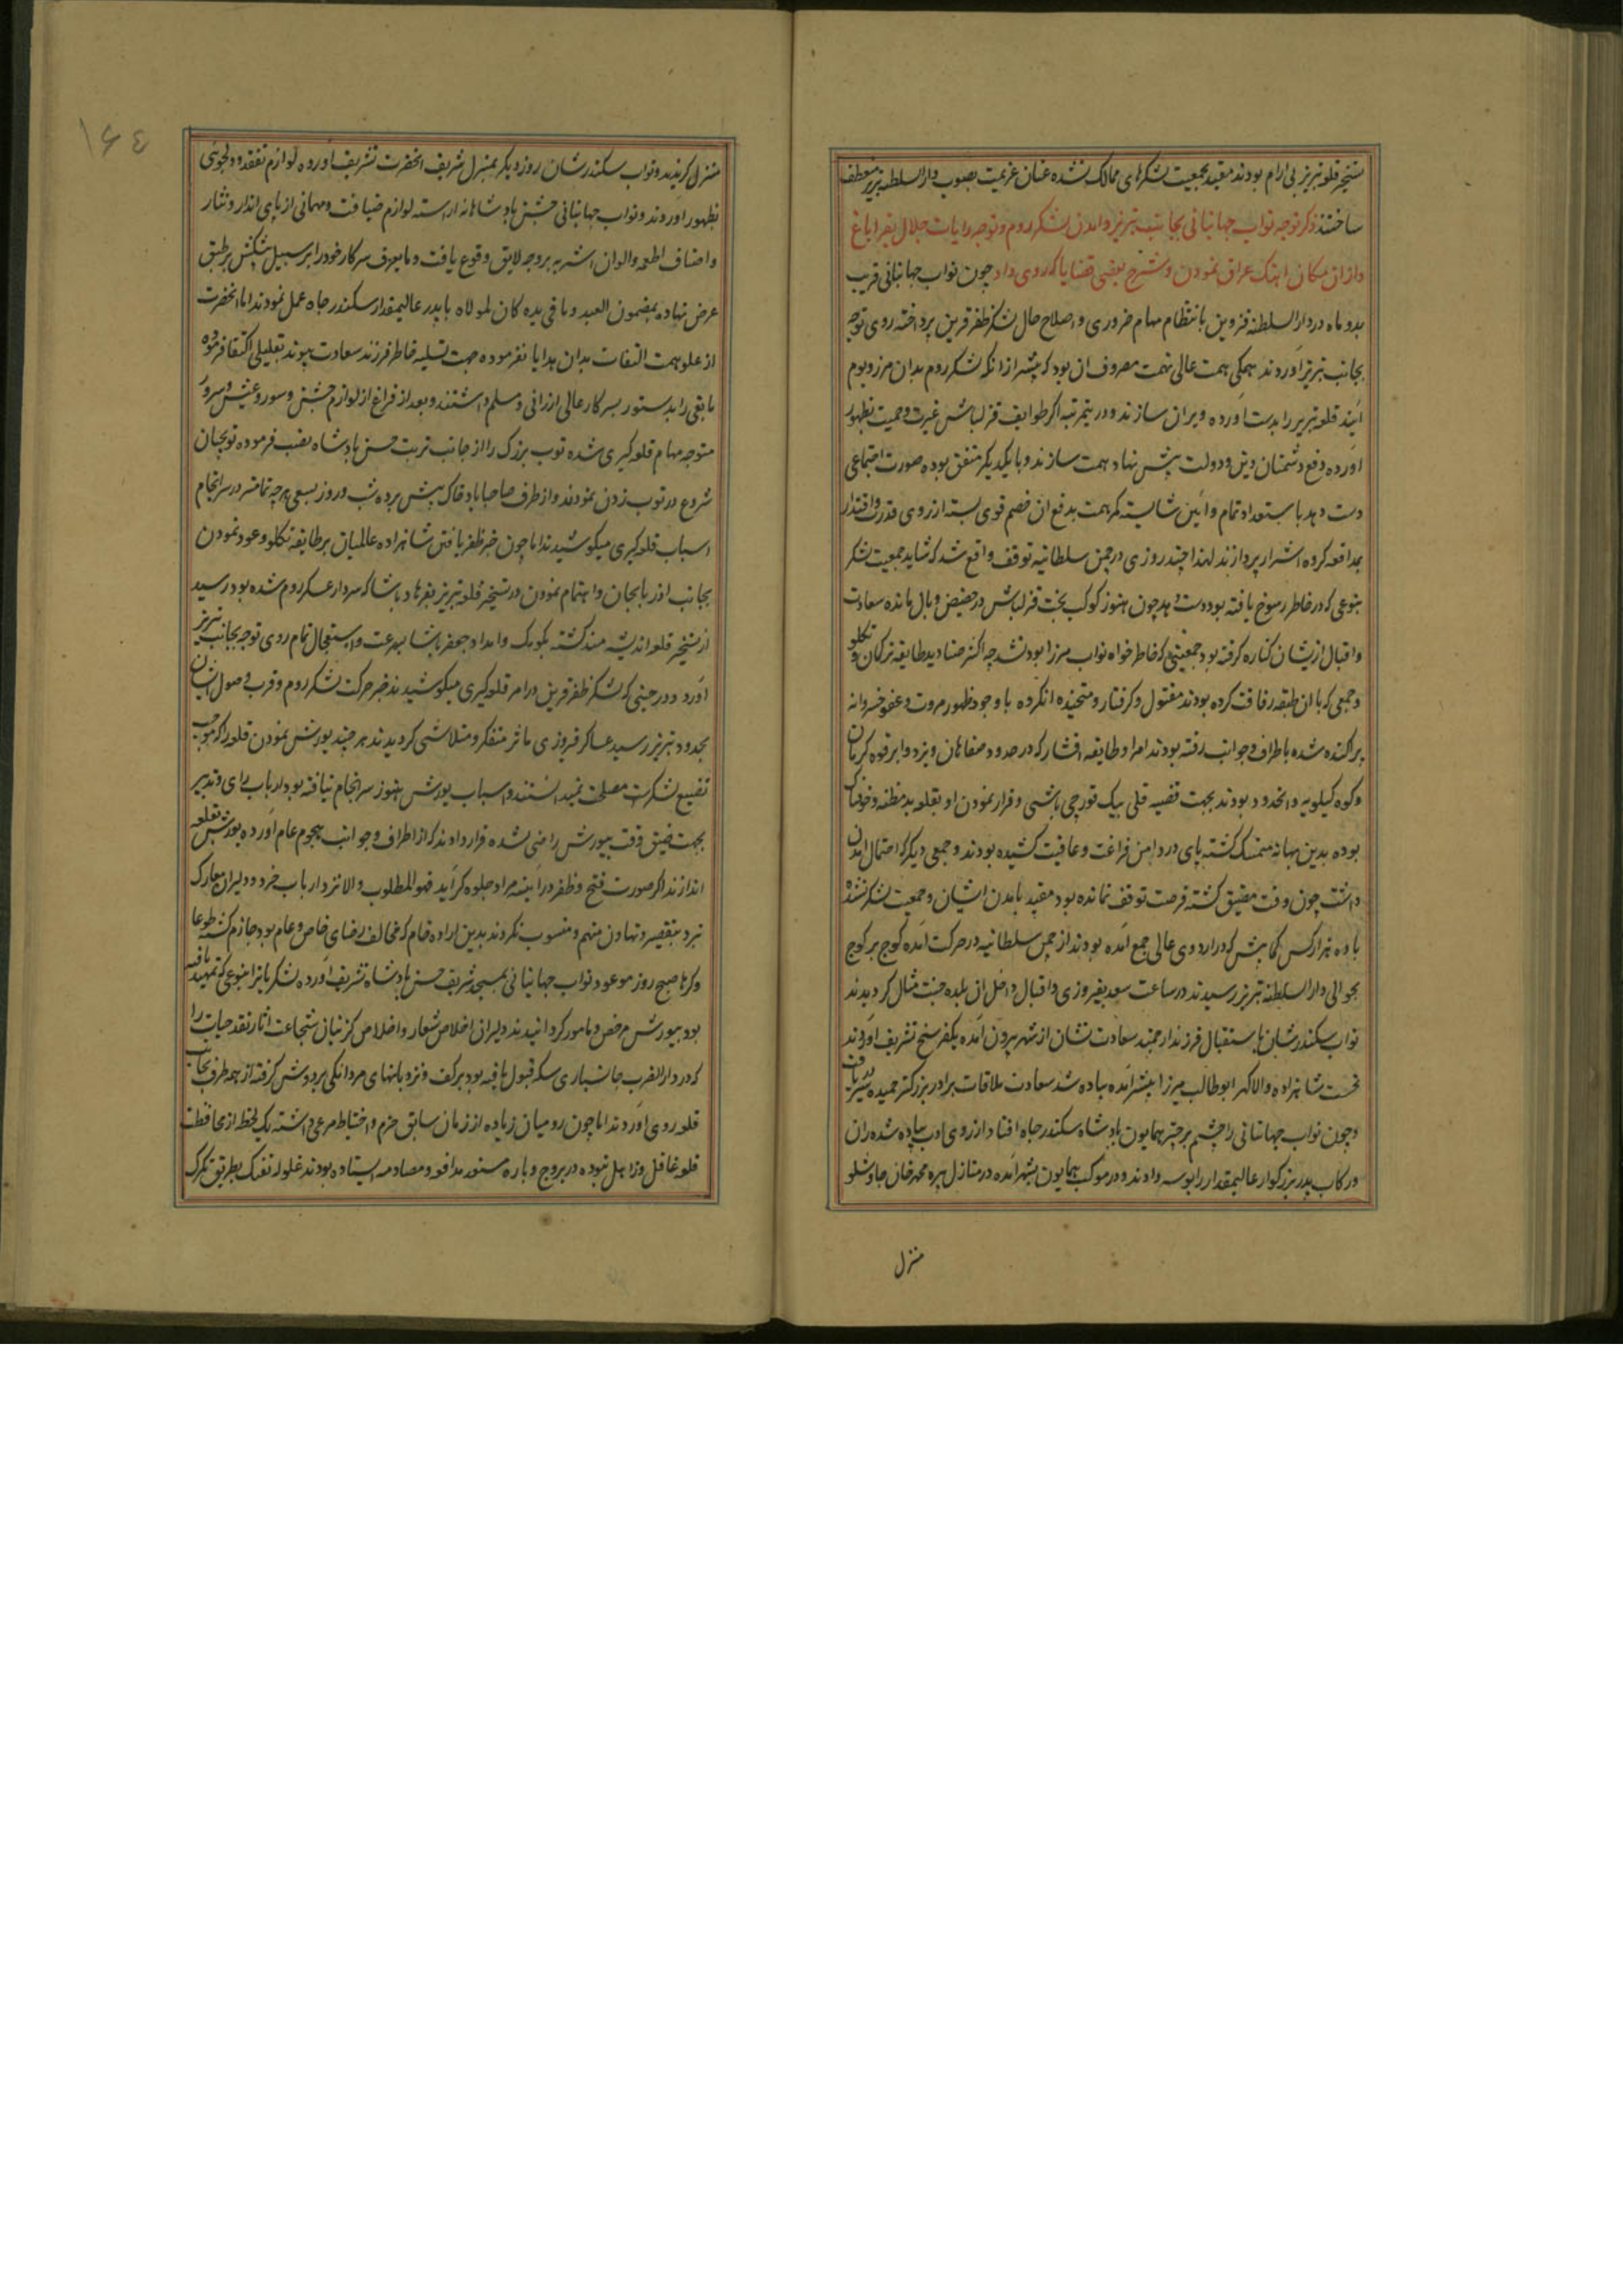 تسخیر قلعه تبریز بی ارام بودند مقید بجمعیت لشکرهای ممالک نشده عنان عزیمت بصوب دارالسلطنه تبریز منعطف
ساختند ذکر توجه نواب جهانبانی بجانب تبریز و امدن لشکر روم و توجه رایات جلال بقراباغ
و از ان مکان اهنک عراق نمودن و شرح بعضی قضایا که روی داد چون نواب جهانبانی قریب
بدو ماه در دارالسلطنه قزوین بانتظام مهام ضروری و اصلاح حال لشکر ظفر قرین پرداخته روی توجه
بجانب تبریز آوردند همکی همت عالی نهمت مصروف ان بود که پیشتر از انکه لشکر روم بدان مرز و بوم
آیند قلعه تبریز را بدست آورده ویران سازند و درینمرتبه اکر طوایف قزلباش غیرت و حمیت بظهور
اورده دفع دشمنان دین و دولت پیش نهاد همت سازند و با یکدیکر متفق بوده صورت اجتماعی
دست دهد باستعداد تمام و آیین شایسته کمر همت بدفع ان خصم قوی بسته از روی قدرت و اقتدار
بمدافعه کروه اشرار پردازند لهذا چند روزی در چمن سلطانیه توقف واقع شد که شاید جمعیت لشکر
بنوعی که در خاطر رسوخ یافته بود دست دهد چون هنوز کوکب بخت قزلباش در حضیض وبال مانده سعادت
و اقبال ازیشان کناره کرفته بود جمعیتی که خاطر خواه نواب میرزا بود نشد چه اکثر صنادید طایفه ترکمان و تکلو
و جمعی که با ان طبقه رفاقت کرده بودند مقتول و کرفتار و متحیزه انکرده با وجود ظهور مروت و عفو خسروانه
پراکنده شده باطراف و جوانب رفته بودند امرا و طایقه افشار که در حدود صفاهان و یزد و ابرقوه کرمان
و کوه کیلویه و انحدود بودند بجهت قضیه قلی بیک قورچی باشی و فرار نمودن او بقلعه بد مظنه و خوفناک
بوده بدین بهانه متمسک کشته پای در دامن فراغت و عافیت کشیده بودند و جمعی دیکر که احتمال امدن
داشت چون وقت مضیق کشته فرصت توقف نمانده بود مقید بامدن ایشان و جمعیت لشکر نشده
با ده هزار کس کمابیش که در اردوی عالی جمع آمده بودند از چمن سلطانیه در حرکت آمده کوج بر کوج
بحوالی دارالسلطنه تبریز رسیدند در ساعت سعد بفیروزی و اقبال داخل ان بلده جنت مثال کردیدند
نواب سکندرشان باستقبال فرزند ارجمند سعادت نشان از شهر بیرون آمده یکفرسخ تشریف آوردند
نخست شاهزاده والا کهر ابوطالب میرزا پیشتر آمده پیاده شد سعادت ملاقات برادر بزرکتر حمیده سیر دریافت
و چون نواب جهانبانی را چشم بر چتر همایون پادشاه سکندر جاه افتاد از روی ادب پیاده شده ران
و رکاب پدر بزرکوار عالیمقدار را بوسه دادند و در موکب همایون بشهر آمده در منازل پیره محمد خان چاوشلو
منزل
۱۶۴
منزل کزیدند و نواب سکندرشان روز دیکر بمنزل شریف انحضرت تشریف آورده لوازم تفقد و دلجوئی
بظهور آوردند و نواب جهانبانی جشن پادشاهانه اراسته لوازم ضیافت و مهمانی از پای انداز و نثار
و اصناف اطعمه و الوان اشربه بروجه لایق وقوع یافت و ما یعرف سرکار خود را بر سبیل پیشکش بر طبق
عرض نهاده بمضمون العبد و ما فی یده کان لمولاه با پدر عالیمقدار سکندر جاه عمل نمودند اما انحضرت
از علو همت التفات بدان هدایا نفرموده جهت تسلیه خاطر فرزند سعادت پیوند بقلیلی اکتفا فرموده
مابقی را بدستور بسرکار عالی ارزانی و مسلم داشتند و بعد از فراغ از لوازم جشن و سور و عیش و سرور
متوجه مهام قلعه کیری شده توب بزرک را از جانب تربت حسن پادشاه نصب فرموده توبچیان
شروع در توب زدن نمودند و از طرف صاحباباد خاک پیش برده شب و روز بسعی هرچه تمامتر در سرانجام
اسباب قلعه کیری میکوشیدند اما چون خبر ظفر یافتن شاهزاده عالمیان بر طایفه تکلو و عود نمودن
بجانب اذربایجان و اهتمام نمودن در تسخیر قلعه تبریز بفرهاد پاشا که سردار عسکر روم شده بود رسید
از تسخیر قلعه اندیشه مند کشته بکومک و امداد جعفر پاشا بسرعت و استعجال تمام روی توجه بجانب تبریز
آورد و در حینی که لشکر ظفر قرین در امر قلعه کیری میکوشیدند خبر حرکت لشکر روم و قرب وصول ایشان
بحدود تبریز رسید عساکر فیروزی ماثر متفکر و متلاشی کردیدند هر چند یورش نمودن قلعه را که موجب
تضییع لشکر است مصلحت نمیدانستند و اسباب یورش هنوز سرانجام نیافته بود ارباب رای و تدبیر
بجهت ضیق وقت بیورش راضی شده قرار دادند که از اطراف و جوانب هجوم عام آورده یورش بقلعه
اندازند اکر صورت فتح و ظفر در آیینه مراد جلوه کر آید فهو المطلوب والا نزد ارباب خرد و دلیران معارک
نبرد بتقصیر و تهاون متهم و منسوب نکردند بدین اراده خام که مخالف رضای خاص و عام بود جازم کشته طوعا
و کرها صبح روز موعود نواب جهانبانی بمسجد شریف حسن پادشاه تشریف آورده لشکریانرا بنوعی که تمهید یافته
بود بیورش مرخص و مامور کردانیدند دلیران اخلاص شعار و اخلاص کزینان شجاعت اثار نقد حیات را
که در دار الضرب جانسپاری سکه قبول یافته بود بر کف و نردبانهای مردانکی بر دوش کرفته از همه طرف بجانب
قلعه روی آوردند اما چون رومیان زیاده از زمان سابق حزم و احتیاط مرعی داشته یک لحظه از محافظت
قلعه غافل و ذاهل نبوده در بروج و باره مستعد مدافعه و مصادمه ایستاده بودند غلوله تفنک بطریق تکرک